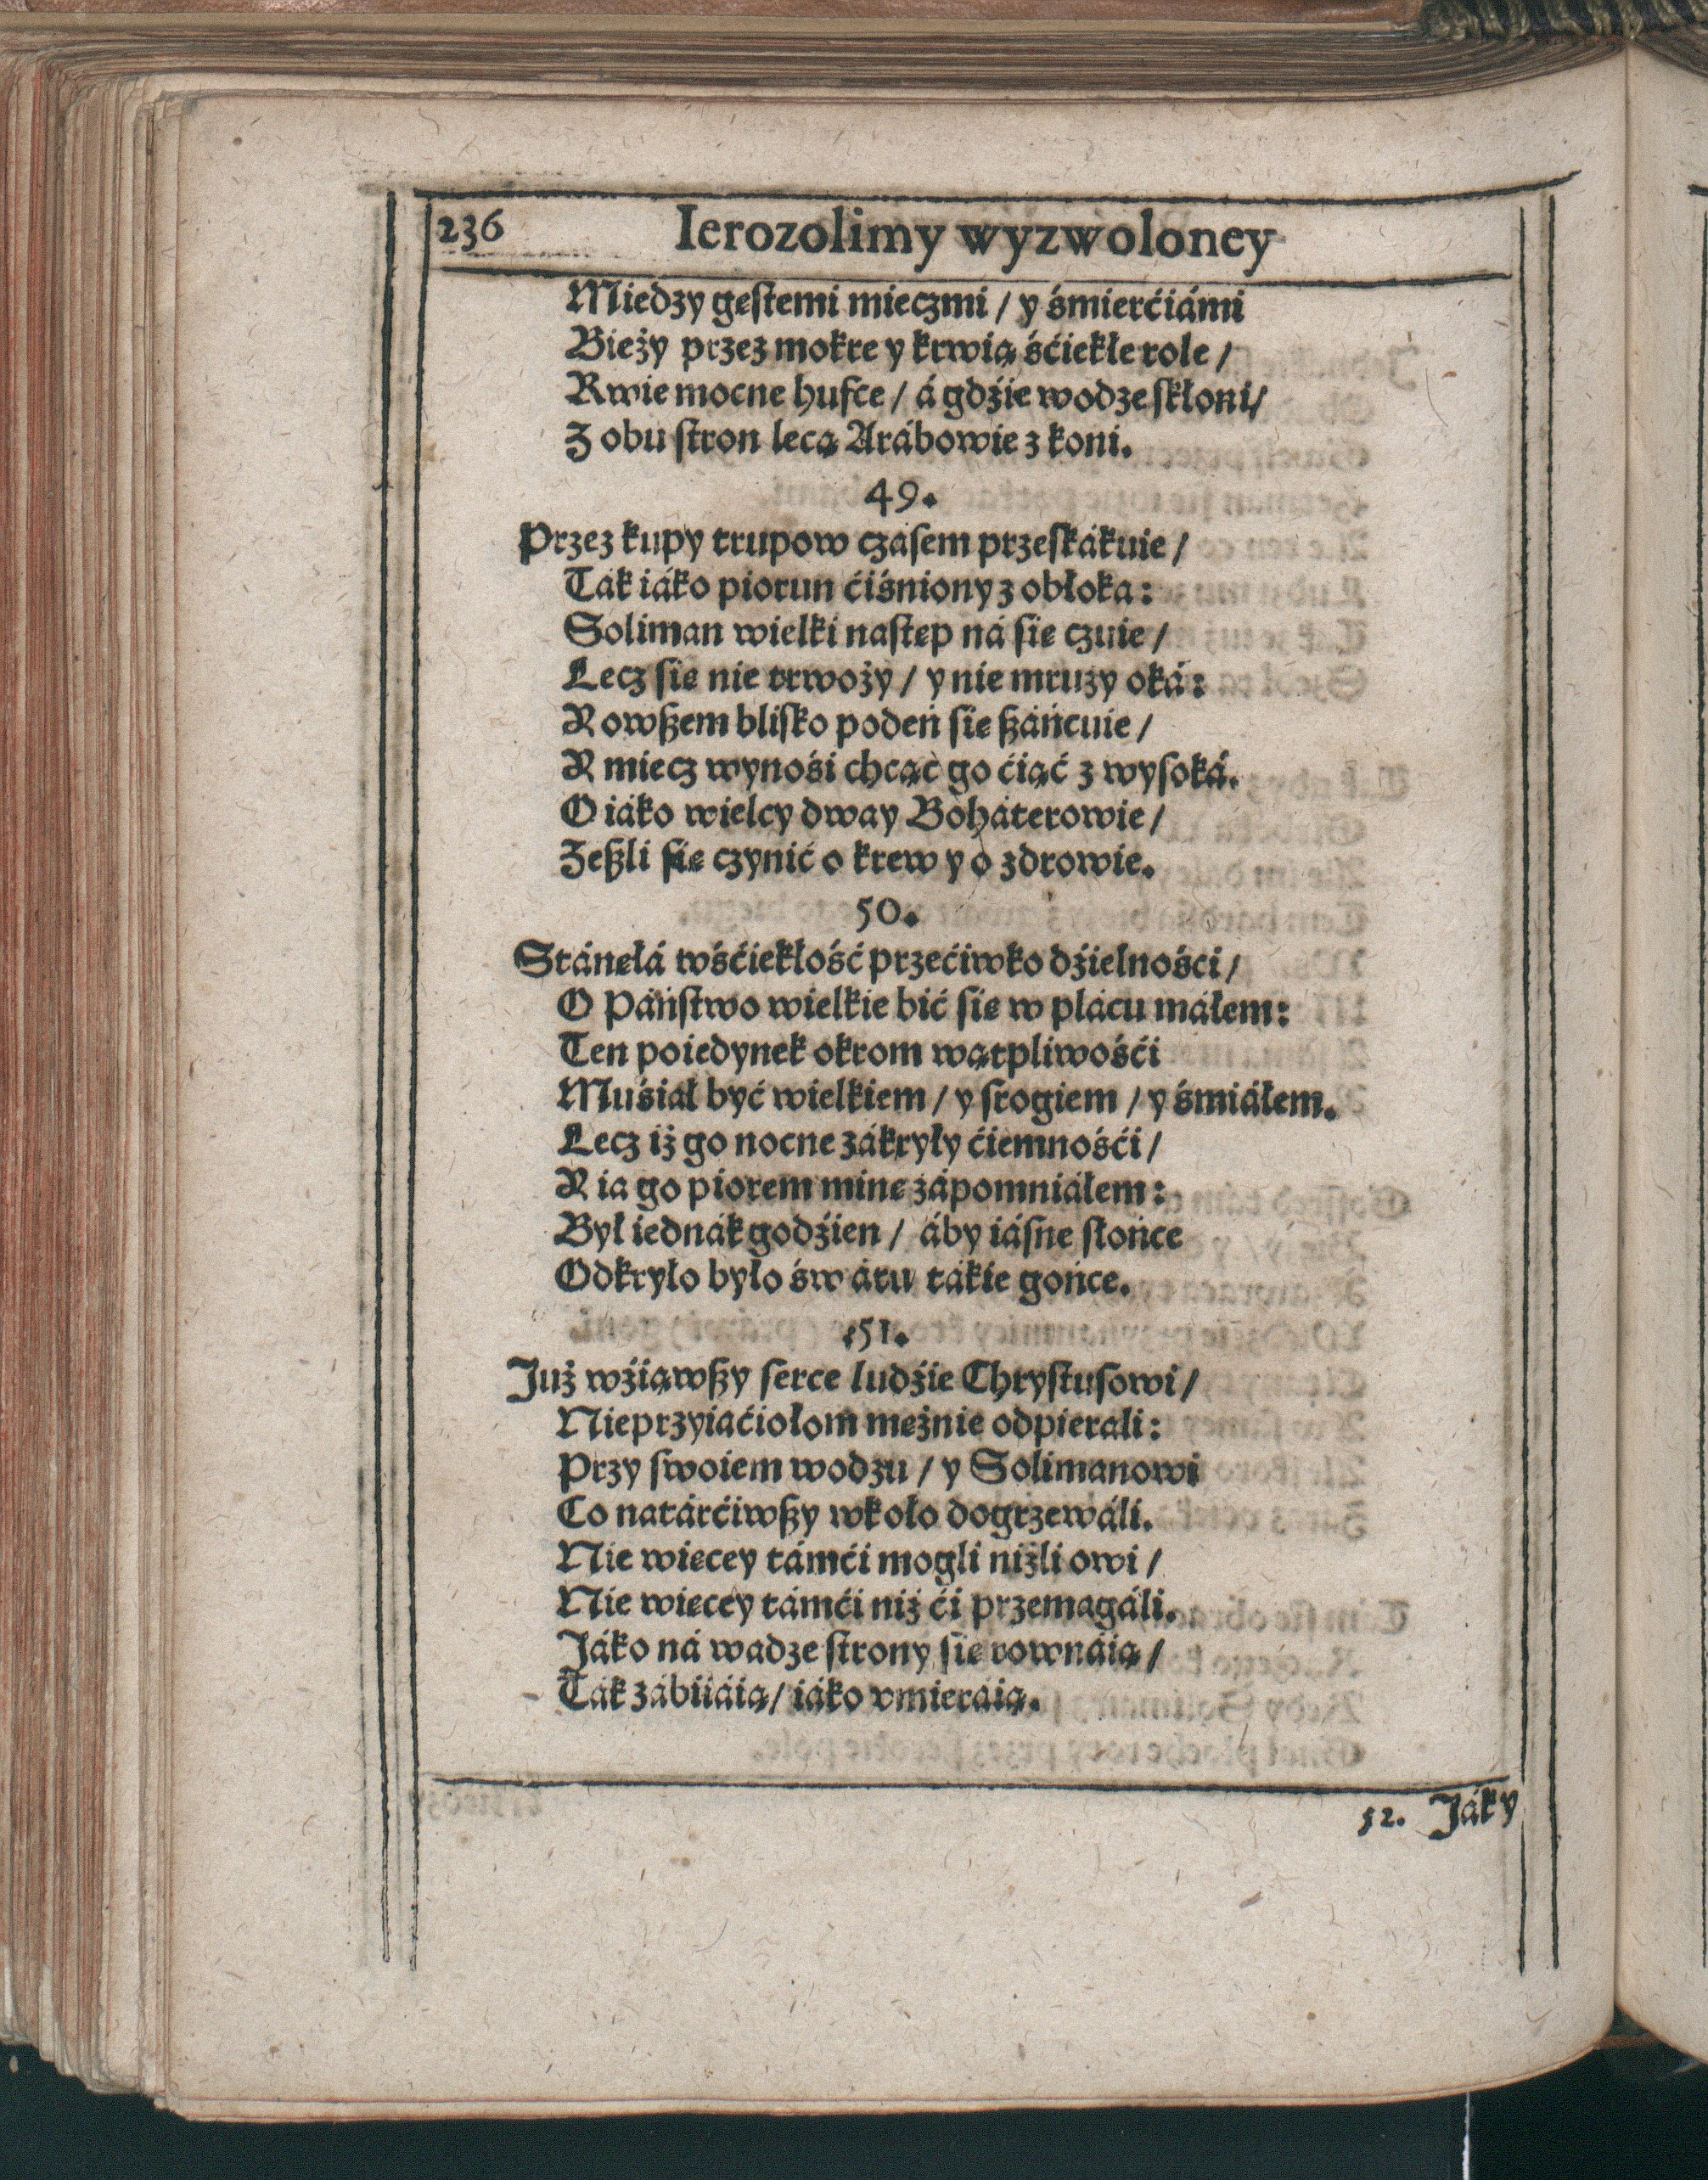 236 Ierozolimy wyzwoloney
Miedzy gęstemi mieczmi / y śmierćiámi
Bieży przez mokre y krwią śćiekłe role /
Rwie mocne hufce / á gdźie wodze skłoni /
Z obu stron lecą Arábowie z koni.
49.
Przez kupy trupow czásem przeskákuie /
Ták iáko piorun ćiśniony z obłoka:
Soliman wielki następ ná się czuie /
Lecz się nie trwoży / y nie mruży oká:
Y owszem blisko podeń się száńcuie /
Y miecz wynośi chcąc go ćiąć z wysoká.
O iáko wielcy dway Boháterowie /
Zeszli się czynić o krew y o zdrowie.
50.
Stánęłá wśćiekłość przećiwko dźielności /
O Páństwo wielkie bić się w plácu máłem:
Ten poiedynek okrom wątpliwośći
Muśiał być wielkiem / y srogiem / y śmiáłem.
Lecz iż go nocne zákryły ćiemnośći /
Y ia go piorem minę zápomniáłem:
Był iednák godźien / áby iásne słońce
Odkryło było świátu tákie gońce.
51.
Już wźiąwszy serce ludźie Chrystusowi /
Nieprzyiaćiołom mężnie odpierali:
Przy swoiem wodzu / y Solimanowi
Co natárćiwszy wkoło dogrzewáli.
Nie więcey támći mogli niżli owi /
Nie więcey támći niż ći przemagáli.
Jáko ná wadze strony się rownáią /
Ták zábiiáią / iáko vmieráią.
52. Ják y